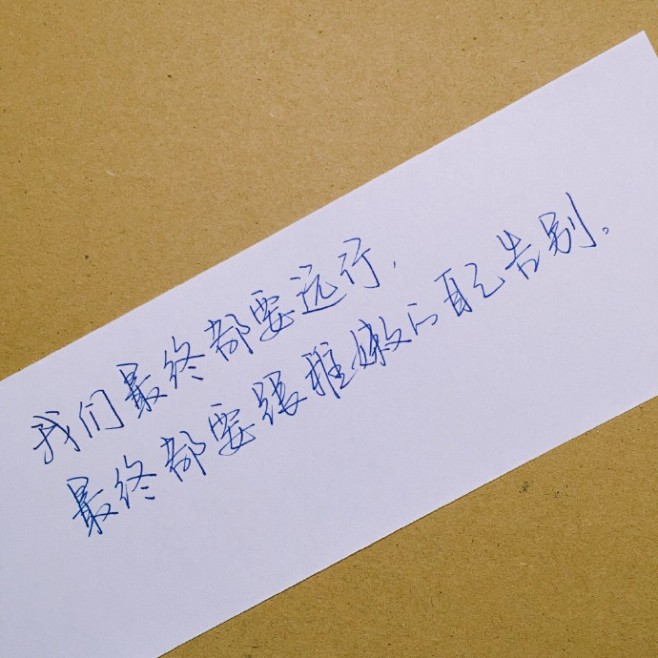 我们最终都要远行，
最终都要跟稚嫩的自己告别。